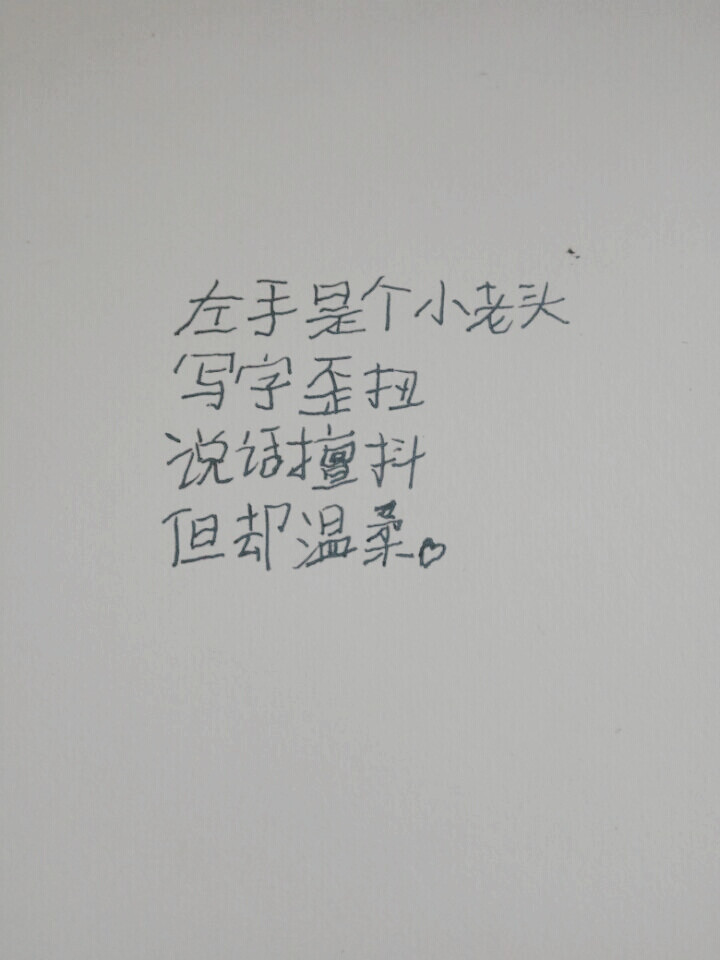 左手是个小老头
写字歪扭
说话擅抖
但却温柔。